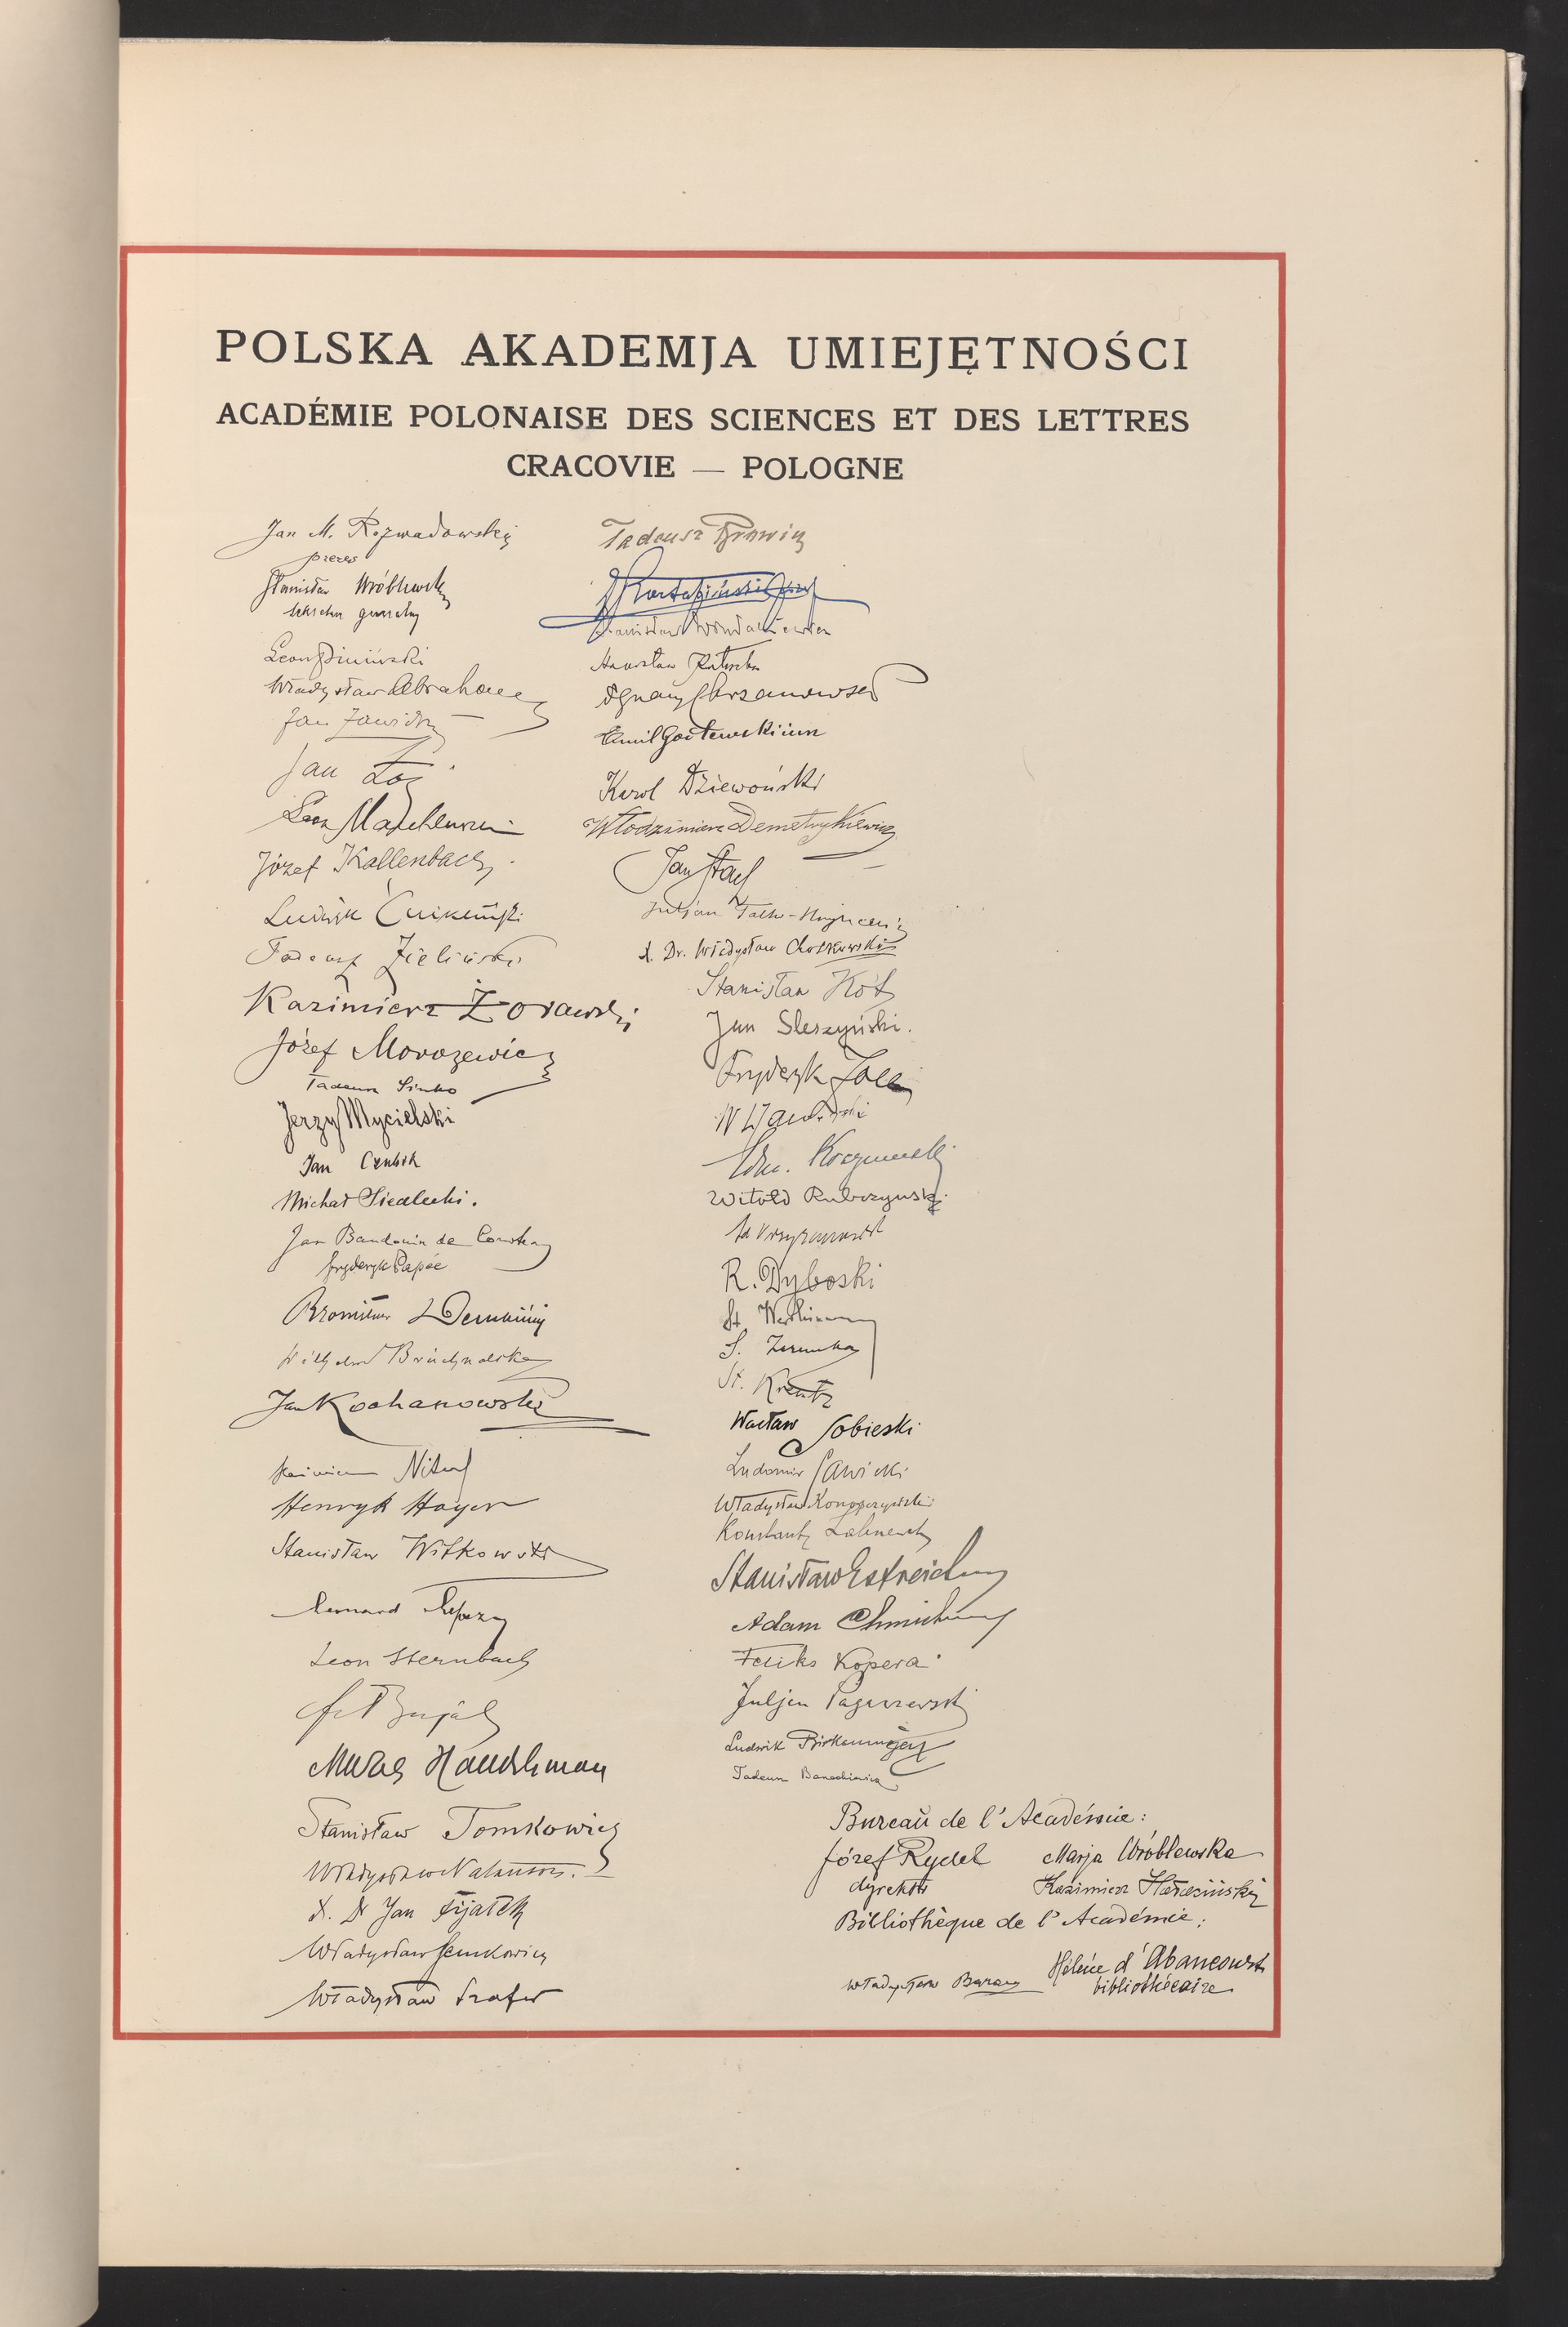 POLSKA AKADEMJA UMIEJĘTNOŚCI
ACADÉMIE POLONAISE DES SCIENCES ET DES LETTRES
CRACOVIE — POLOGNE
Jan M. Rozwadowski
prezes
Stanisław Wróblewski
Leon Piniński
Władysław Abraham
Jan Zawidzki
Jan Łoś
Leon Marchlewski
Józef Kallenbach
Ludwik Ćwikliński
Tadeusz Zieliński
Kazimierz Żorawski
Józef Morozewicz
Tadeusz Sinko
Jerzy Mycielski
Jan Czubek
Michał Siedlecki.
Jan Baudouin de Courtenay
Fryderyk Papée
Bronisław Dembiński
Wilhelm Bruchnalski
Jan Kochanowski
Kazimierz Nitsch
Henryk Hoyer
Stanisław Witkowski
Leon Sternbach
Fr. Bujak
Marceli Handelsman
Stanisław Tomkowicz
Władysław Natanson.
X. Dr Jan Fijałek
Władysław Semkowicz
Władysław Szafer
Tadeusz Browicz
Stanisław Windakiewicz
Stanisław Kutrzeba
Ignacy Chrzanowski
Emil Godlewski iun
Karol Dziewoński
Włodzimierz Demetrykiewicz
Jan Stach
Juljan Talko-Hryncewicz
X. Dr. Władysław Chotkowski
Stanisław Kot
Jan Sleszyński.
Fryderyk Zoll
Edm. Krzymuski
Witold Rubczyński
A Krzyżanowski
R. Dyboski
S. Zaremba
St. Kreutz
Wacław Sobieski
Ludomir Sawicki
Władysław Konopczyński
Stanisław Estreicher
Adam Chmiel
Feliks Kopera
Juljan Pagaczewski
Ludwik Birkenmajer
Tadeusz Banachiewicz
Bureau de l'Académie:
Józef Rydel Marja Wróblewska
dyrektor Kazimierz Harasiński
Bibliothèque de l'Académie:
Hélène d'Abancourt
Władysław Baran bibliothécaire